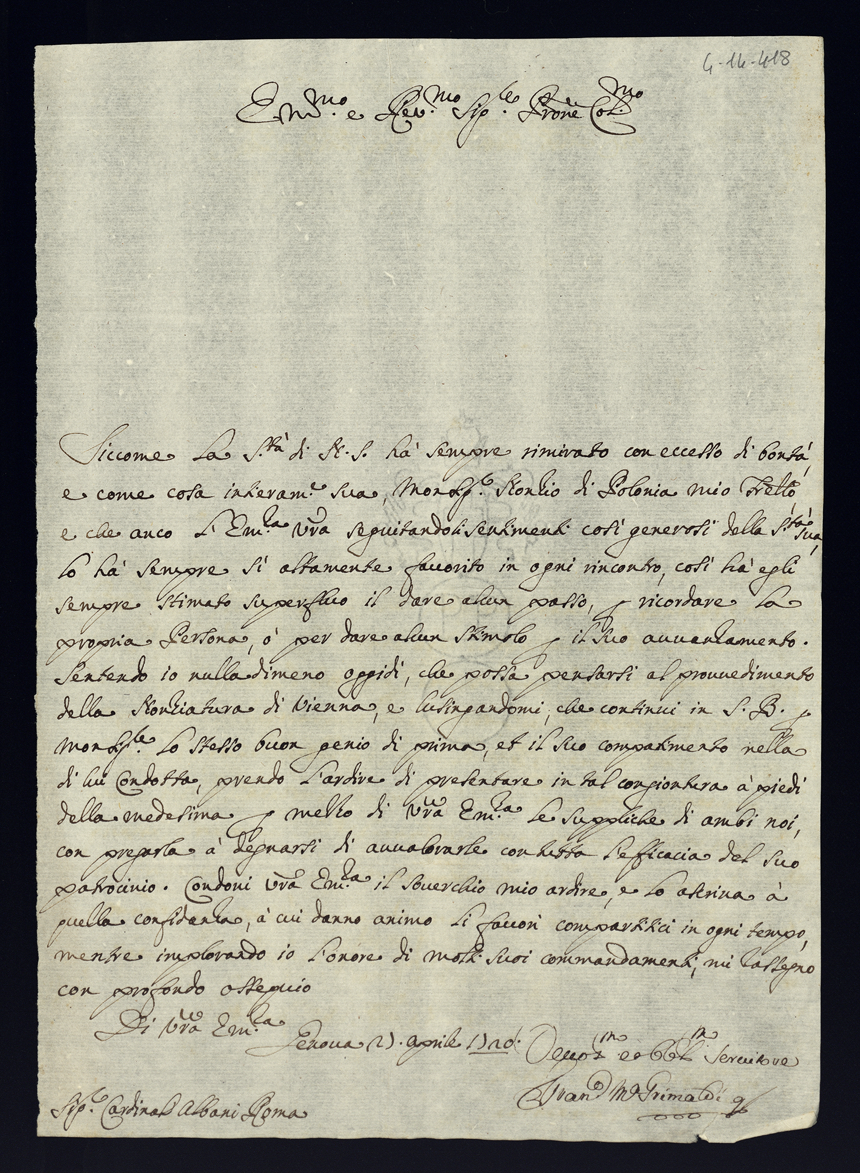 4-14-418
Em.mo e Rev.mo Sig.re Prone Col.mo
Siccome La S.tà di N. S. hà sempre rimirato con eccesso di bontà,
e come cosa interam.e sua, Monsig.r Nonzio di Polonia mio Fretto,
e che anco l'Em.za Vra seguitando li sentimenti così generosi della S.tà Sua,
lo hà sempre sì altamente favorito in ogni rincontro, così hà egli
sempre stimato superfluo il dare alcun passo, p ricordare La
propria Persona, ò per dare alcun stimolo p il suo avvantamento.
Sentendo io nulladimeno oggidì, che possa pensarsi al provvedimento
della Nonziatura di Vienna, e lusingandomi, che continui in S. B. p
Monsig.re Lo stesso buon genio di prima, et il suo compatimento nella
di lui Condotta, prendo L'ardire di presentare in tal congiontura à piedi
della medesima p mezzo di Vra Em.za Le suppliche di ambi noi,
con pregarla à degnarsi di avvalorarle con tutta l'efficacia del suo
patrocinio. Condoni Vra Em.za il soverchio mio ardire, e lo ascriva à
quella confidanza, à cui danno animo li favori compartitici in ogni tempo,
mentre implorando io L'onore di molti suoi commandamenti, mi rassegno
con profondo ossequio
Di Vra Em.za
Genova 21. Aprile 1720.
Devot.mo ed Obl.mo Servitore
Fran.co M.a Grimaldi
Sig.r Cardinal Albani Roma